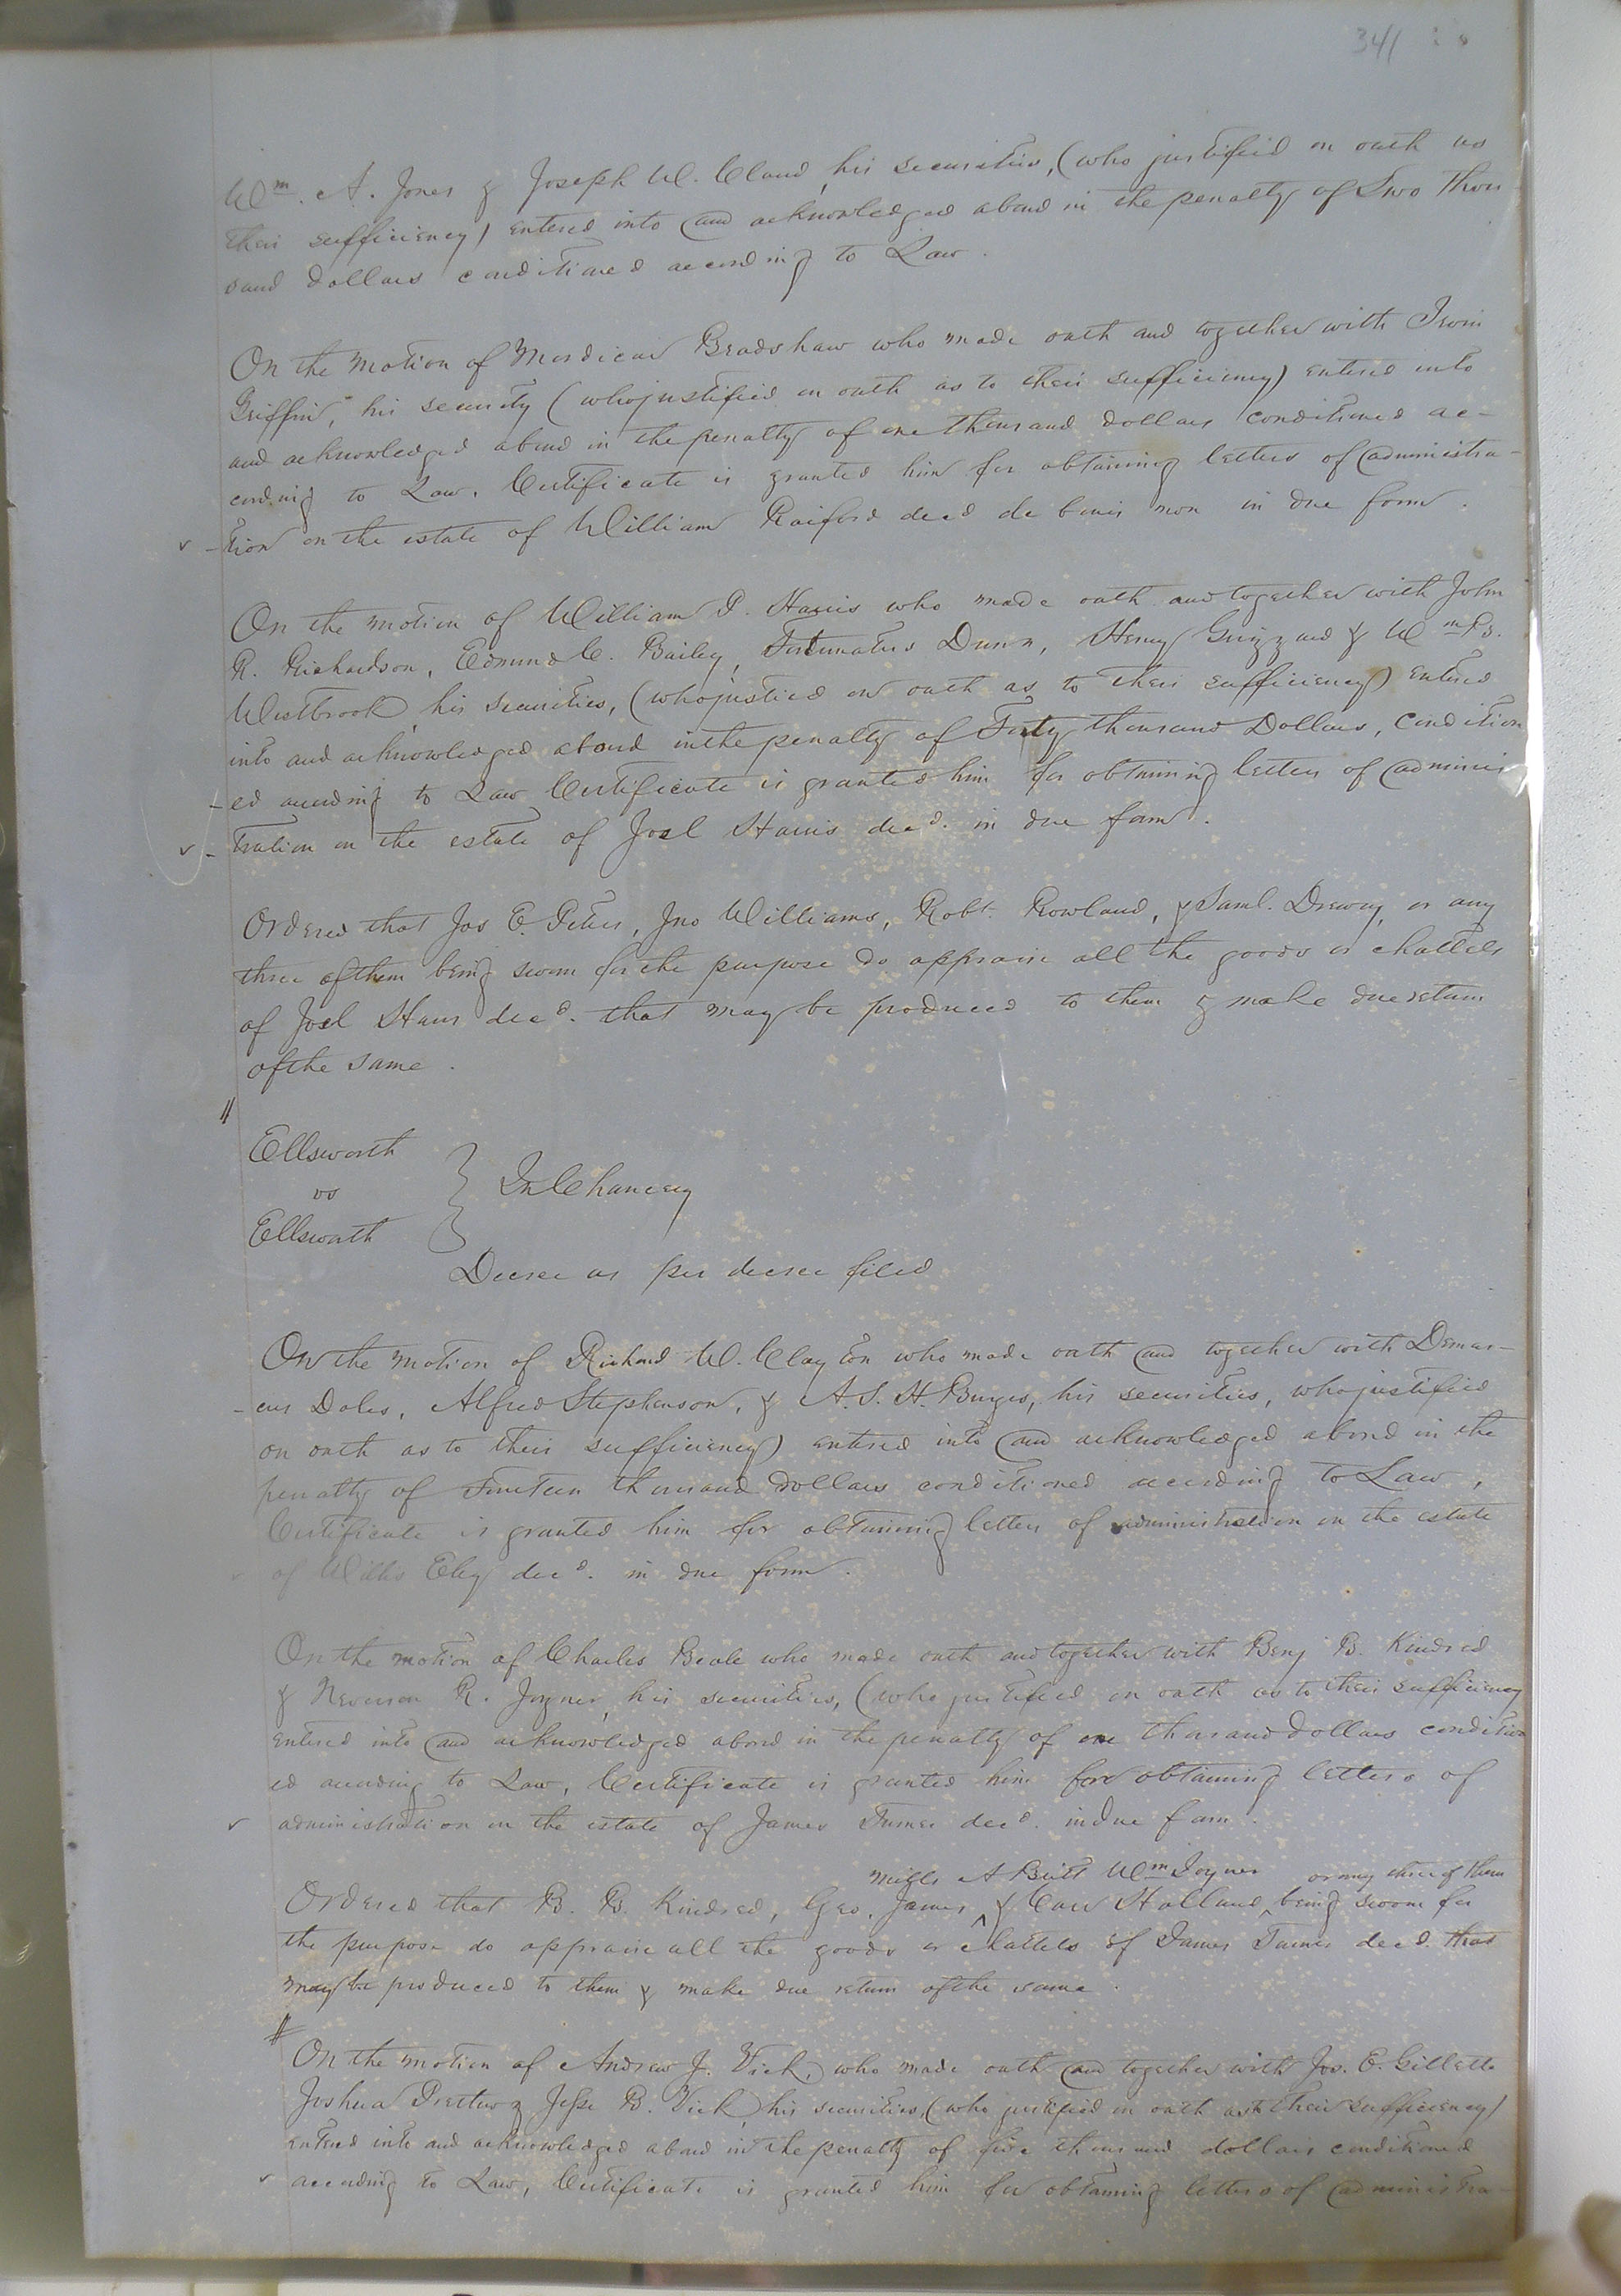 341
Wm. A. Jones & Joseph W. Claud his securities, (who justified on oath as
their sufficiency) entered into and acknowledged abond in the penalty of Two thou
sand dollars conditioned according to Law.
On the motion of Mordicai Bradshaw who made oath and together with Irwin
Griffin, his security (who justified on oath as to their sufficiency) entered into
and acknowledged abond in the penalty of one thousand dollars conditioned ac-
cording to Law. Certificate is granted him for obtaining letters of administra-
-tion on the estate of William Raiford decd de bonis non in due form.
On the motion of William J. Harris who made oath and together with John
R. Richardson, Edmund C. Bailey, Fortunatus Dunn, Henry Grizzard & Wm B.
Westbrook his securities, (who justied on oath as to their sufficiency) entered
into and acknowledged abond in the penalty of Forty thousand Dollars, condition
-ed according to Law Certificate is granted him for obtaining letters of adminis
-tration on the estate of Joel Harris decd. in due form.
Ordered that Jos E. Peters, Jno Williams, Robt. Rowland, & Saml. Drewry, or any
three of them being sworn for the purpose do appraise all the goods or chattels
of Joel Harris decd. that may be produced to them & make due return
of the same.
Ellsworth
vs
Ellsworth
In Chancery
Decree as per decree filed
On the motion of Richard W. Clayton who made oath and together with Demar-
-cus Doles, Alfred Stephenson, & A. S. H. Burges, his securities, who justified
on oath as to their sufficiency) entered into and acknowledged abond in the
penalty of Fourteen thousand dollars conditioned according to Law,
Certificate is granted him for obtaining letters of administration on the estate
of Willis Eley decd. in due form.
On the motion of Charles Beale who made oath and together with Benj B. Kindred
& Neverson R. Joyner, his securities, (who justified on oath as to their sufficiency
entered into and acknowledged abond in the penalty of one thousand dollars condition
ed according to Law, Certificate is granted him for obtaining letters of
administration on the estate of James Turner decd. in due form.
Mills A Britt Wm Joyner or any three of them
Ordered that B. B. Kindred, Geo. James & Carr Holland being sworn for
the purpose do appraise all the goods or chattels of James Turner decd. that
may be produced to them & make due return of the same.
On the motion of Andrew J. Vick, who made oath and together with Jos. E. Gillette
Joshua Pretlow & Jesse B. Vick his securities, (who justified on oath as to their sufficiency)
entered into and acknowledged abond in the penalty of five thousand dollars conditioned
according to Law, Certificate is granted him for obtaining letters of administra-